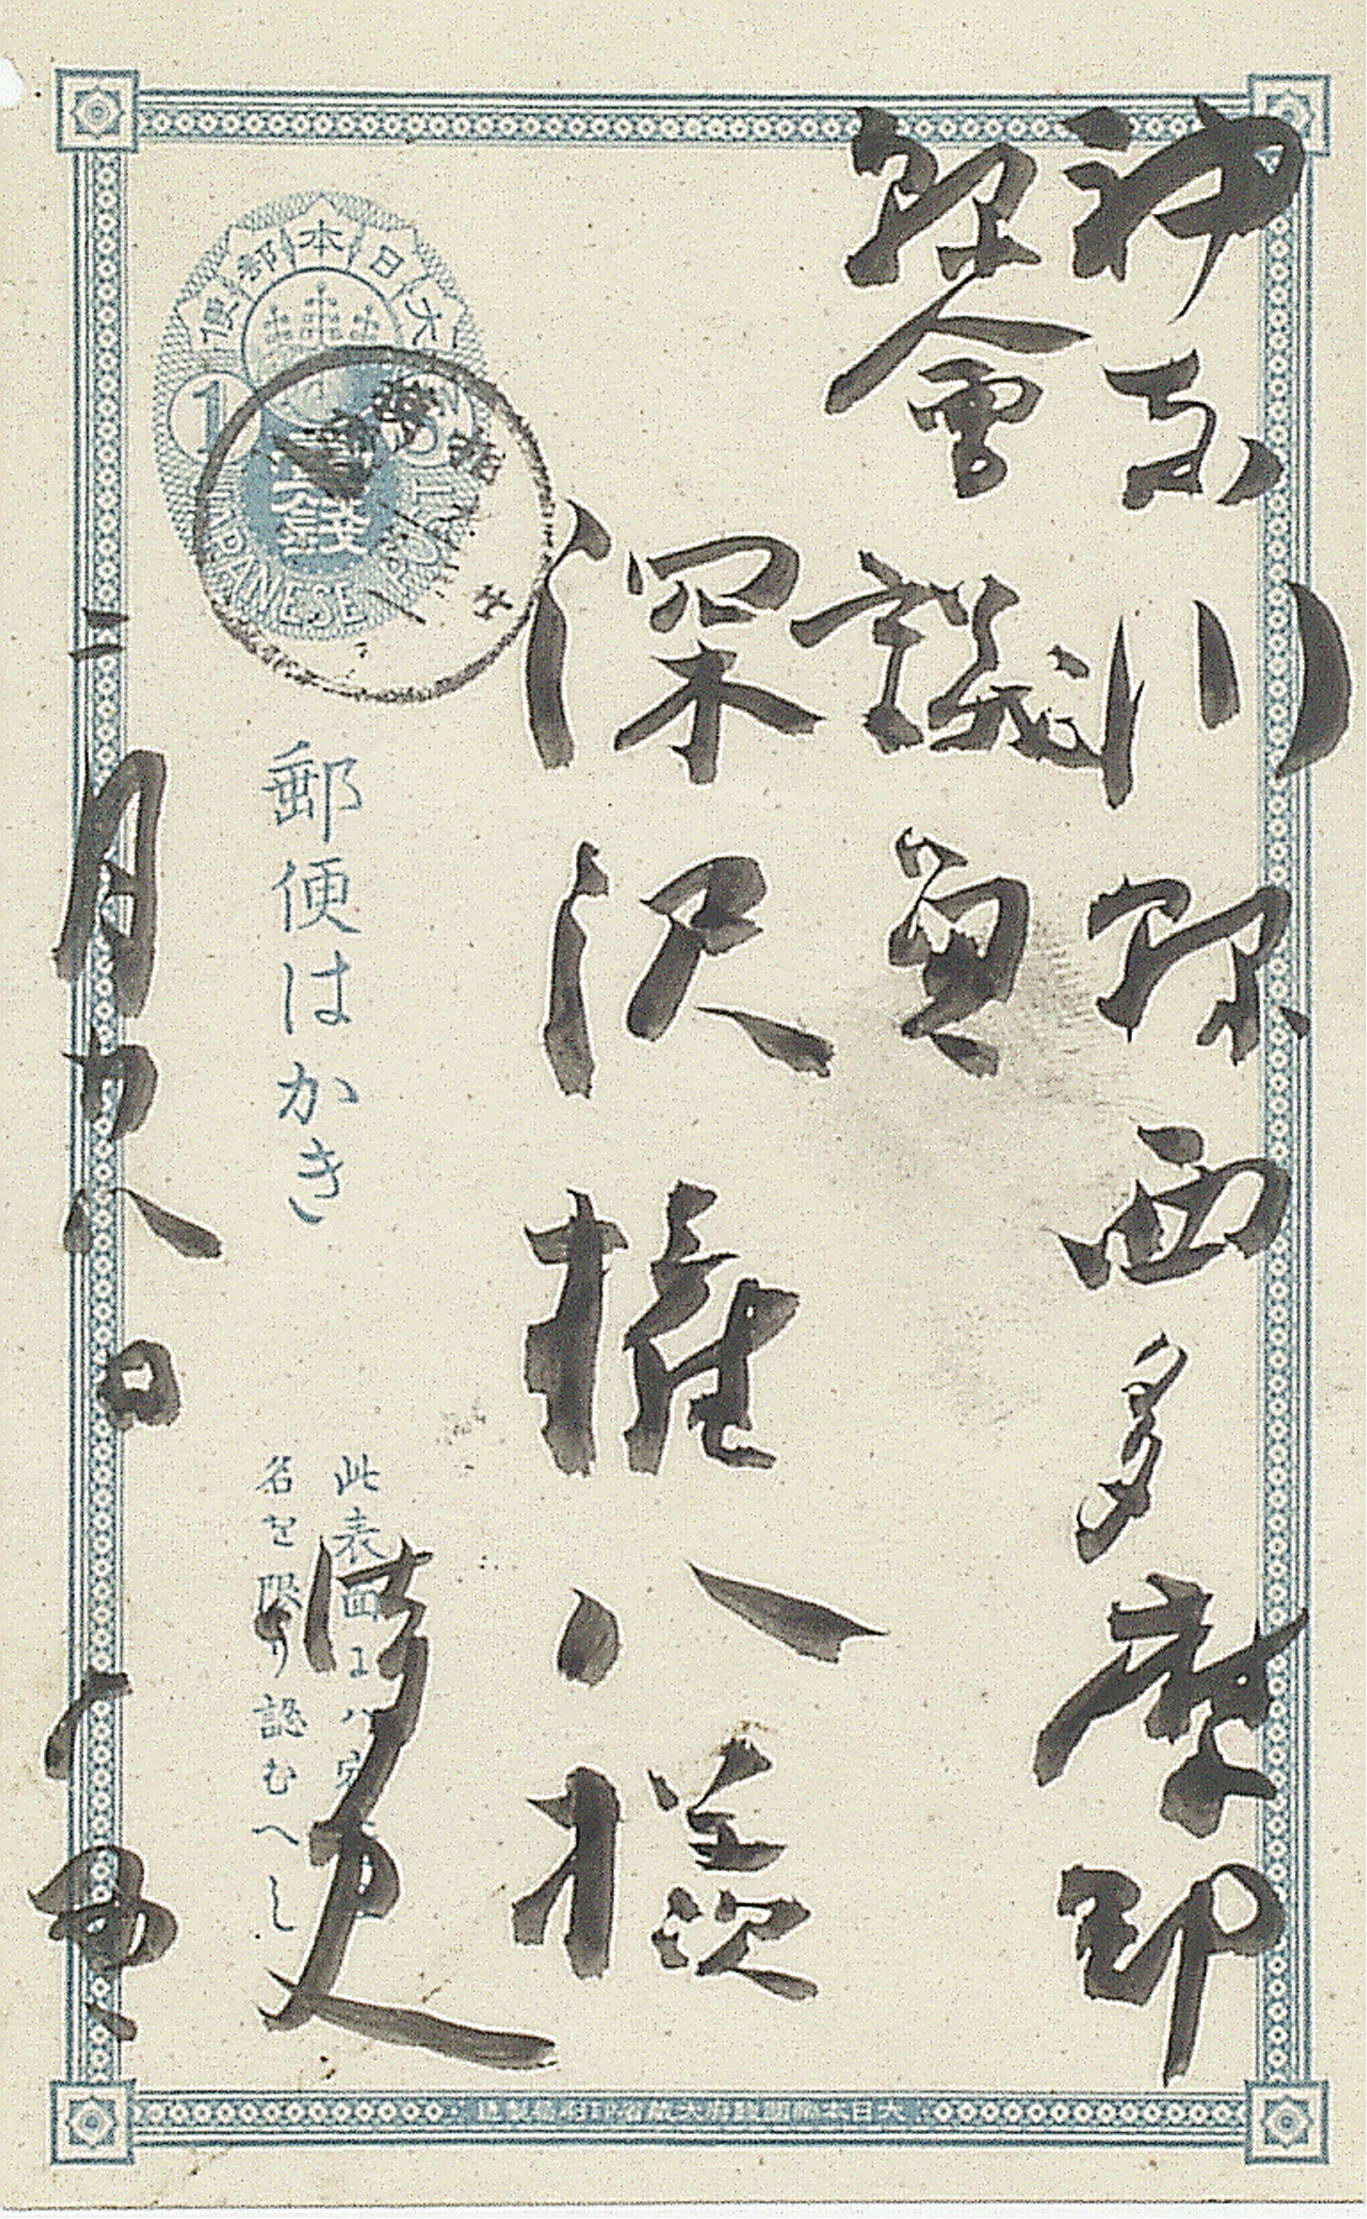 神奈川縣西多摩郡
縣會議員
深沢權八様
二月廿八日
郵便はかき
此表面にハ宛
名を限り認むへし
大日本郵便
壹錢
1 SN
JAPANESE POST
大日本帝國政府大蔵省印刷局製造